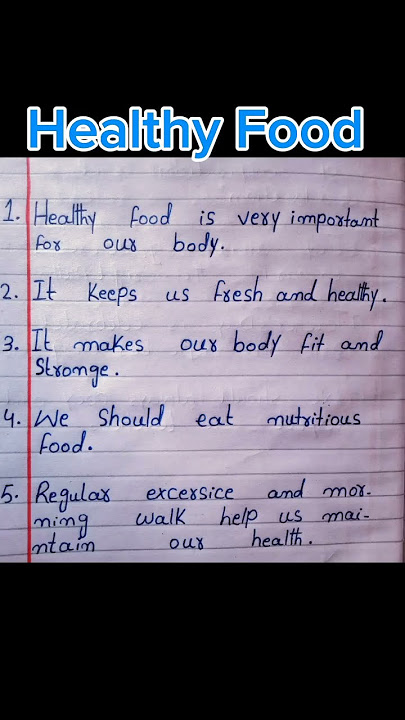 Healthy Food
1. Healthy food is very important
for our body.
2. It keeps us fresh and healthy.
3. It makes our body fit and
Stronge.
4. We Should eat nutritious
food.
5. Regular excersice and mor-
ning walk help us mai-
ntain our health.